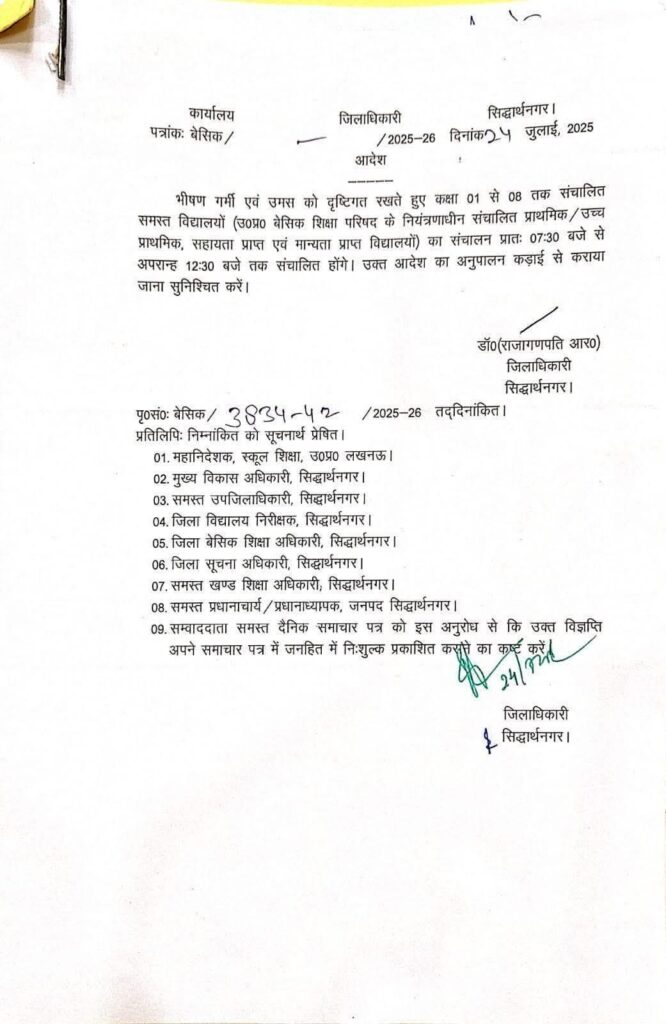 कार्यालय जिलाधिकारी सिद्धार्थनगर।
पत्रांकः बेसिक/ — /2025-26 दिनांक 24 जुलाई, 2025
आदेश
भीषण गर्मी एवं उमस को दृष्टिगत रखते हुए कक्षा 01 से 08 तक संचालित
समस्त विद्यालयों (उ०प्र० बेसिक शिक्षा परिषद के नियंत्रणाधीन संचालित प्राथमिक/उच्च
प्राथमिक, सहायता प्राप्त एवं मान्यता प्राप्त विद्यालयों) का संचालन प्रातः 07:30 बजे से
अपरान्ह 12:30 बजे तक संचालित होंगे। उक्त आदेश का अनुपालन कड़ाई से कराया
जाना सुनिश्चित करें।
डॉ०(राजागणपति आर०)
जिलाधिकारी
सिद्धार्थनगर।
पृ०सं०ः बेसिक/ 3834-42 /2025-26 तद्दिनांकित।
प्रतिलिपिः निम्नांकित को सूचनार्थ प्रेषित।
01. महानिदेशक, स्कूल शिक्षा, उ०प्र० लखनऊ।
02. मुख्य विकास अधिकारी, सिद्धार्थनगर।
03. समस्त उपजिलाधिकारी, सिद्धार्थनगर।
04. जिला विद्यालय निरीक्षक, सिद्धार्थनगर।
05. जिला बेसिक शिक्षा अधिकारी, सिद्धार्थनगर।
06. जिला सूचना अधिकारी, सिद्धार्थनगर।
07. समस्त खण्ड शिक्षा अधिकारी, सिद्धार्थनगर।
08. समस्त प्रधानाचार्य/प्रधानाध्यापक, जनपद सिद्धार्थनगर।
09. सम्वाददाता समस्त दैनिक समाचार पत्र को इस अनुरोध से कि उक्त विज्ञप्ति
अपने समाचार पत्र में जनहित में निःशुल्क प्रकाशित कराने का कष्ट करें।
जिलाधिकारी
सिद्धार्थनगर।